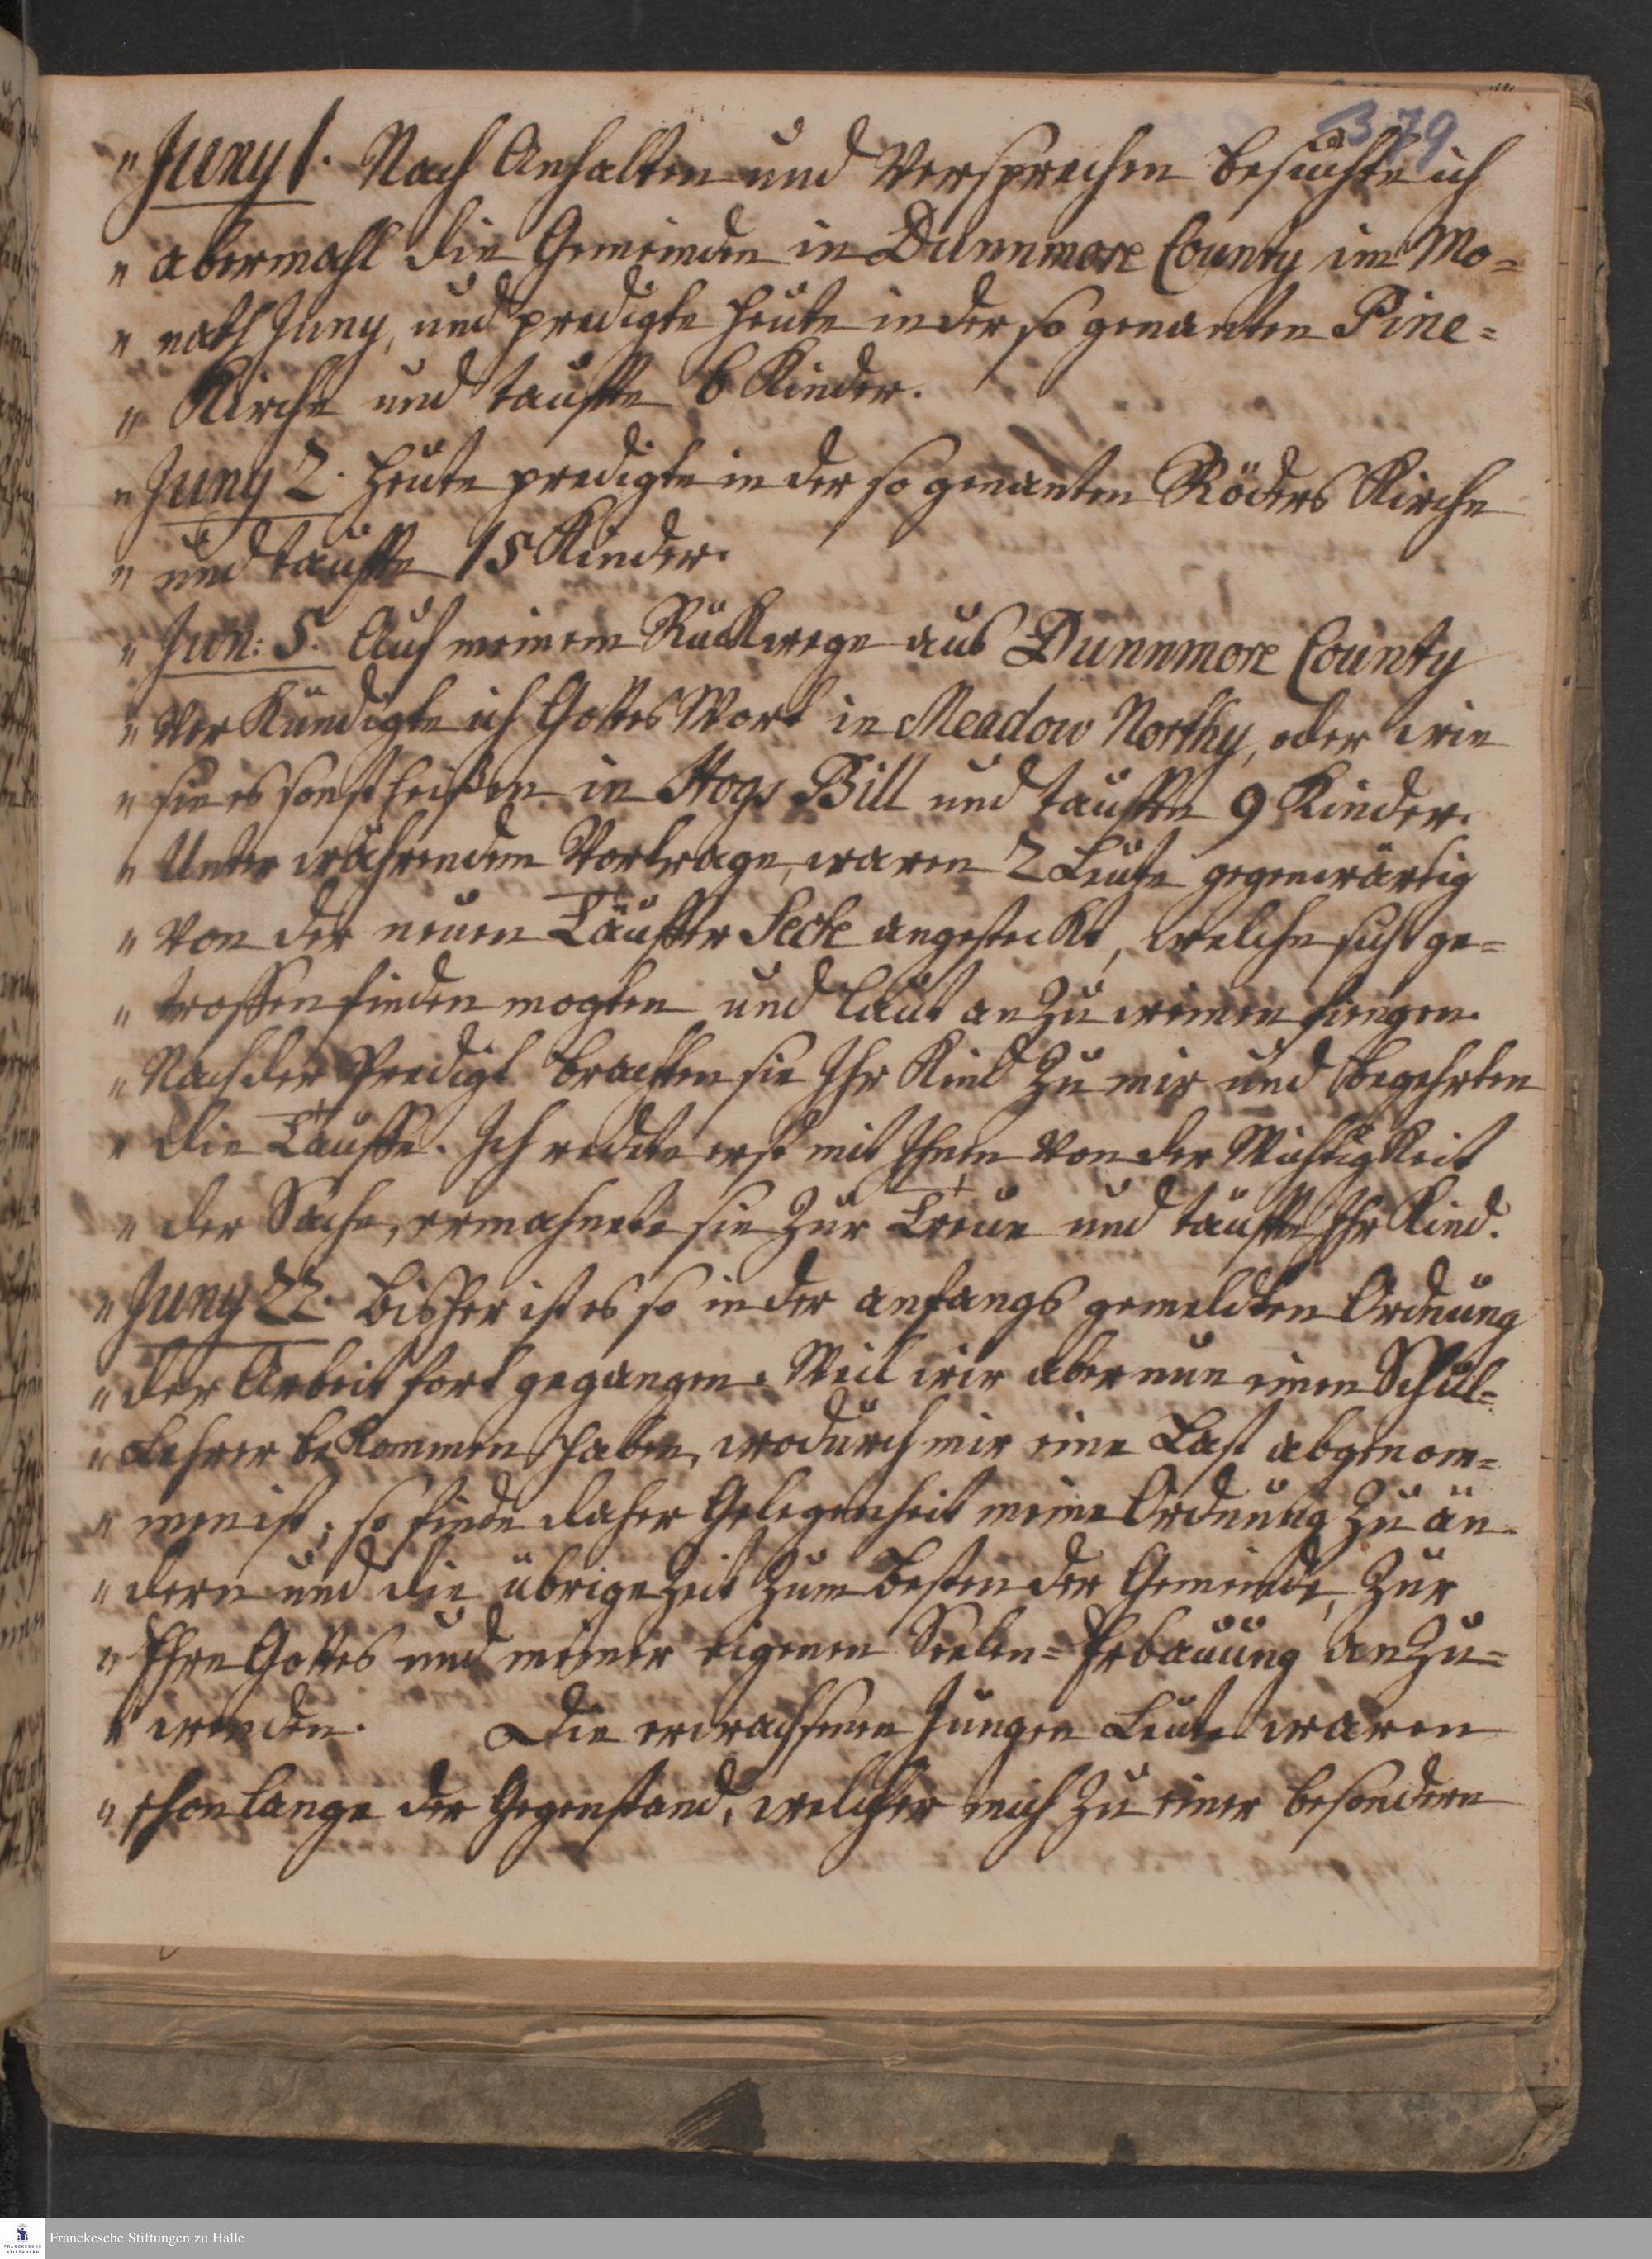 379
„ Juny 1. Nach Anhalten und Versprechen besuchte ich
„ abermahl die Gemeinden in Dunnmore County im Mo=
„ nath Juny, und predigte heute in der so genanten Pine=
„ Kirche und tauffte 6 Kinder.
„ Juny 2. Heute predigte in der so genanten Röders Kirche
„ und tauffte 15 Kinder.
„ Jun: 5. Auf meinem Rückwege aus Dunnmore County
„ verkündigte ich Gottes Wort in Meadow Northy, oder wie
„ sie es sonst heißen in Hogs Bill und tauffte 9 Kinder.
„ Unter währendem Vortrage, waren 2 Leute gegenwärtig
„ von der neuen Täuffer Secte angesteckt, welche sich ge=
„ troffen finden mogten und laut an zu weinen fiengen.
„ Nach der Predigt brachten sie Ihr Kind zu mir und begehrten
„ die Tauffe. Ich redete erst mit Ihnen von der Wichtigkeit
„ der Sache, ermahnete sie zur Treue und tauffte Ihr Kind.
„ Juny 22. Bisher ist es so in der anfangs gemeldten Ordnung
„ der Arbeit fort gegangen. Weil wir aber nun einen Schul=
„ Lehrer bekommen haben, wodurch mir eine Last abgenom=
„ men ist; so finde daher Gelegenheit meine Ordnung zu än=
„ dern und die übrige Zeit zum Besten der Gemeinde, zur
„ Ehre Gottes und meiner eigenen Seelen=Erbauung anzu=
„ wenden. Die erwachsenen Jungen Leute waren
„ schon lange der Gegenstand, welcher mich zu einer besondern
Franckesche Stiftungen zu Halle